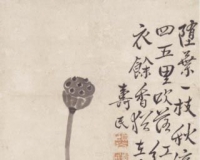 墮葉一枝秋
四五里欲落紅
衣餘香猶在
壽民